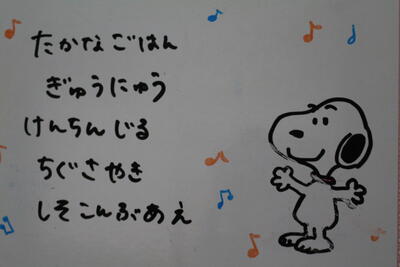 たかなごはん
ぎゅうにゅう
けんちんじる
ちぐさやき
しそこんぶあえ